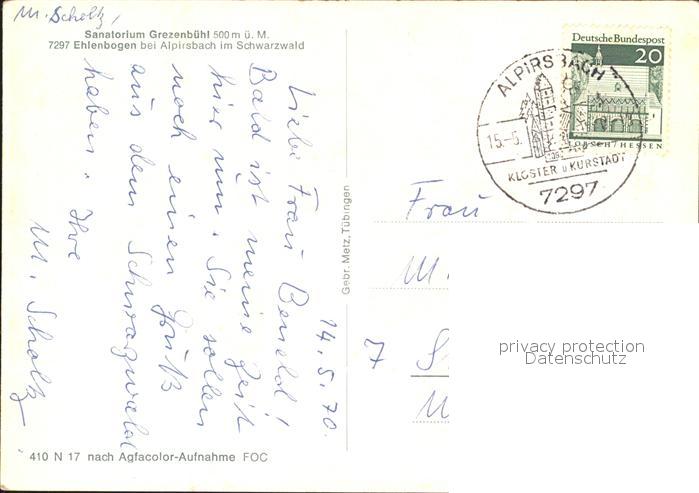 M. Scholz,
Sanatorium Grezenbühl 500 m ü. M.
7297 Ehlenbogen bei Alpirsbach im Schwarzwald
14.5.70.
Liebe Frau
Bald ist meine Zeit
hier um. Sie sollen
noch einen Gruß
aus dem Schwarzwald
haben. Ihre
M. Scholz
410 N 17 nach Agfacolor-Aufnahme FOC
Gebr. Metz, Tübingen
Deutsche Bundespost
20
LORSCH/HESSEN
ALPIRSBACH
15.-5.
KLOSTER u KURSTADT
7297
Frau
M.
7 S
privacy protection
Datenschutz